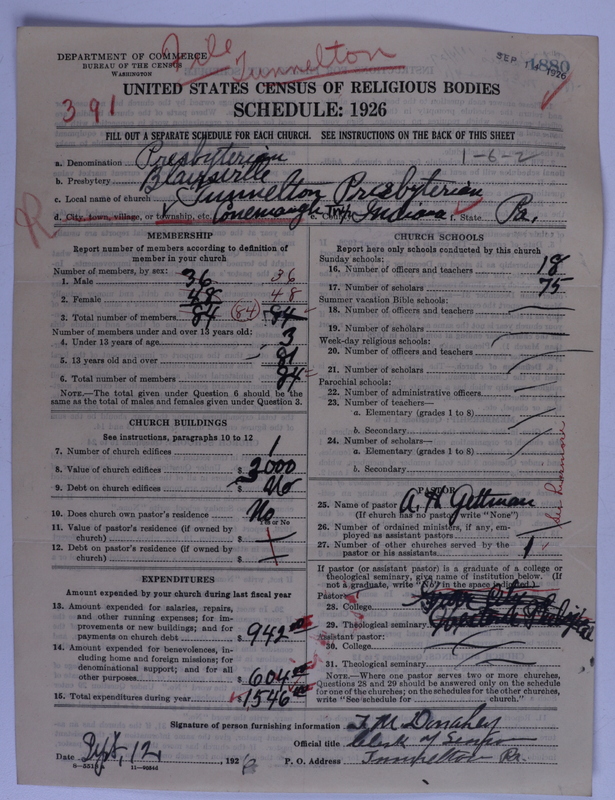 File Tunnelton
DEPARTMENT OF COMMERCE
BUREAU OF THE CENSUS
WASHINGTON
SEP 14 1926
4880
391
UNITED STATES CENSUS OF RELIGIOUS BODIES
SCHEDULE: 1926
FILL OUT A SEPARATE SCHEDULE FOR EACH CHURCH. SEE INSTRUCTIONS ON THE BACK OF THIS SHEET
a. Denomination Presbyterian 1-6-2
b. Presbytery Blairsville
c. Local name of church Tunnelton Presbyterian
d. City, town, village, or township, etc. Conemaugh Twp. e. County Indiana f. State Pa.
MEMBERSHIP
Report number of members according to definition of
member in your church
Number of members, by sex:
1. Male 36 36
2. Female 48 48
3. Total number of members 84 (84) 84
Number of members under and over 13 years old:
4. Under 13 years of age 3
5. 13 years old and over 81
6. Total number of members 84
NOTE.—The total given under Question 6 should be the
same as the total of males and females given under Question 3.
CHURCH BUILDINGS
See instructions, paragraphs 10 to 12
7. Number of church edifices 1
8. Value of church edifices $ 3000
9. Debt on church edifices $ No
10. Does church own pastor's residence No
Yes or No
11. Value of pastor's residence (if owned by
church) $
12. Debt on pastor's residence (if owned by
church) $
EXPENDITURES
Amount expended by your church during last fiscal year
13. Amount expended for salaries, repairs,
and other running expenses; for im-
provements or new buildings; and for
payments on church debt $ 942.00
14. Amount expended for benevolences, in-
cluding home and foreign missions; for
denominational support; and for all
other purposes $ 604.00
15. Total expenditures during year $ 1546.00
CHURCH SCHOOLS
Report here only schools conducted by this church
Sunday schools:
16. Number of officers and teachers 18
17. Number of scholars 75
Summer vacation Bible schools:
18. Number of officers and teachers
19. Number of scholars
Week-day religious schools:
20. Number of officers and teachers
21. Number of scholars
Parochial schools:
22. Number of administrative officers
23. Number of teachers—
a. Elementary (grades 1 to 8)
b. Secondary
24. Number of scholars—
a. Elementary (grades 1 to 8)
b. Secondary
PASTOR
25. Name of pastor A. H. Gettman
(If church has no pastor, write "None")
26. Number of ordained ministers, if any, em-
ployed as assistant pastors
27. Number of other churches served by the
pastor or his assistants 1
If pastor (or assistant pastor) is a graduate of a college or
theological seminary, give name of institution below. (If
not a graduate, write "No" in the space indicated.)
Pastor:
28. College
29. Theological seminary Western Theological
Assistant pastor:
30. College
31. Theological seminary
NOTE.—Where one pastor serves two or more churches,
Questions 28 and 29 should be answered only on the schedule
for one of the churches; on the schedules for the other churches,
write "See schedule for church."
Signature of person furnishing information T. M. Donahey
Official title Clerk of Session
Date Sept, 12, 1926 P. O. Address Tunnelton Pa.